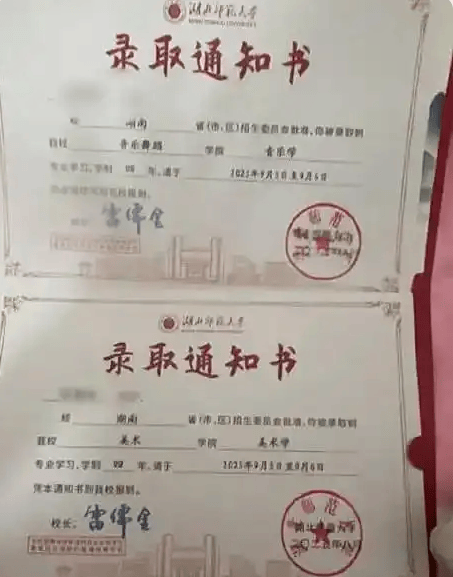 湖北师范大学
录取通知书
经 湖南 省(市、区)招生委员会批准,你被录取到
我校 音乐舞蹈 学院 音乐学
专业学习,学制 四 年,请于 2025年9月5日至9月6日
到我校报到。
湖北师范大学
录取通知书
经 湖南 省(市、区)招生委员会批准,你被录取到
我校 美术 学院 美术学
专业学习,学制 四 年,请于 2025年9月5日至9月6日
凭本通知书到我校报到。
校长:
湖北师范大学
二〇二五年八月